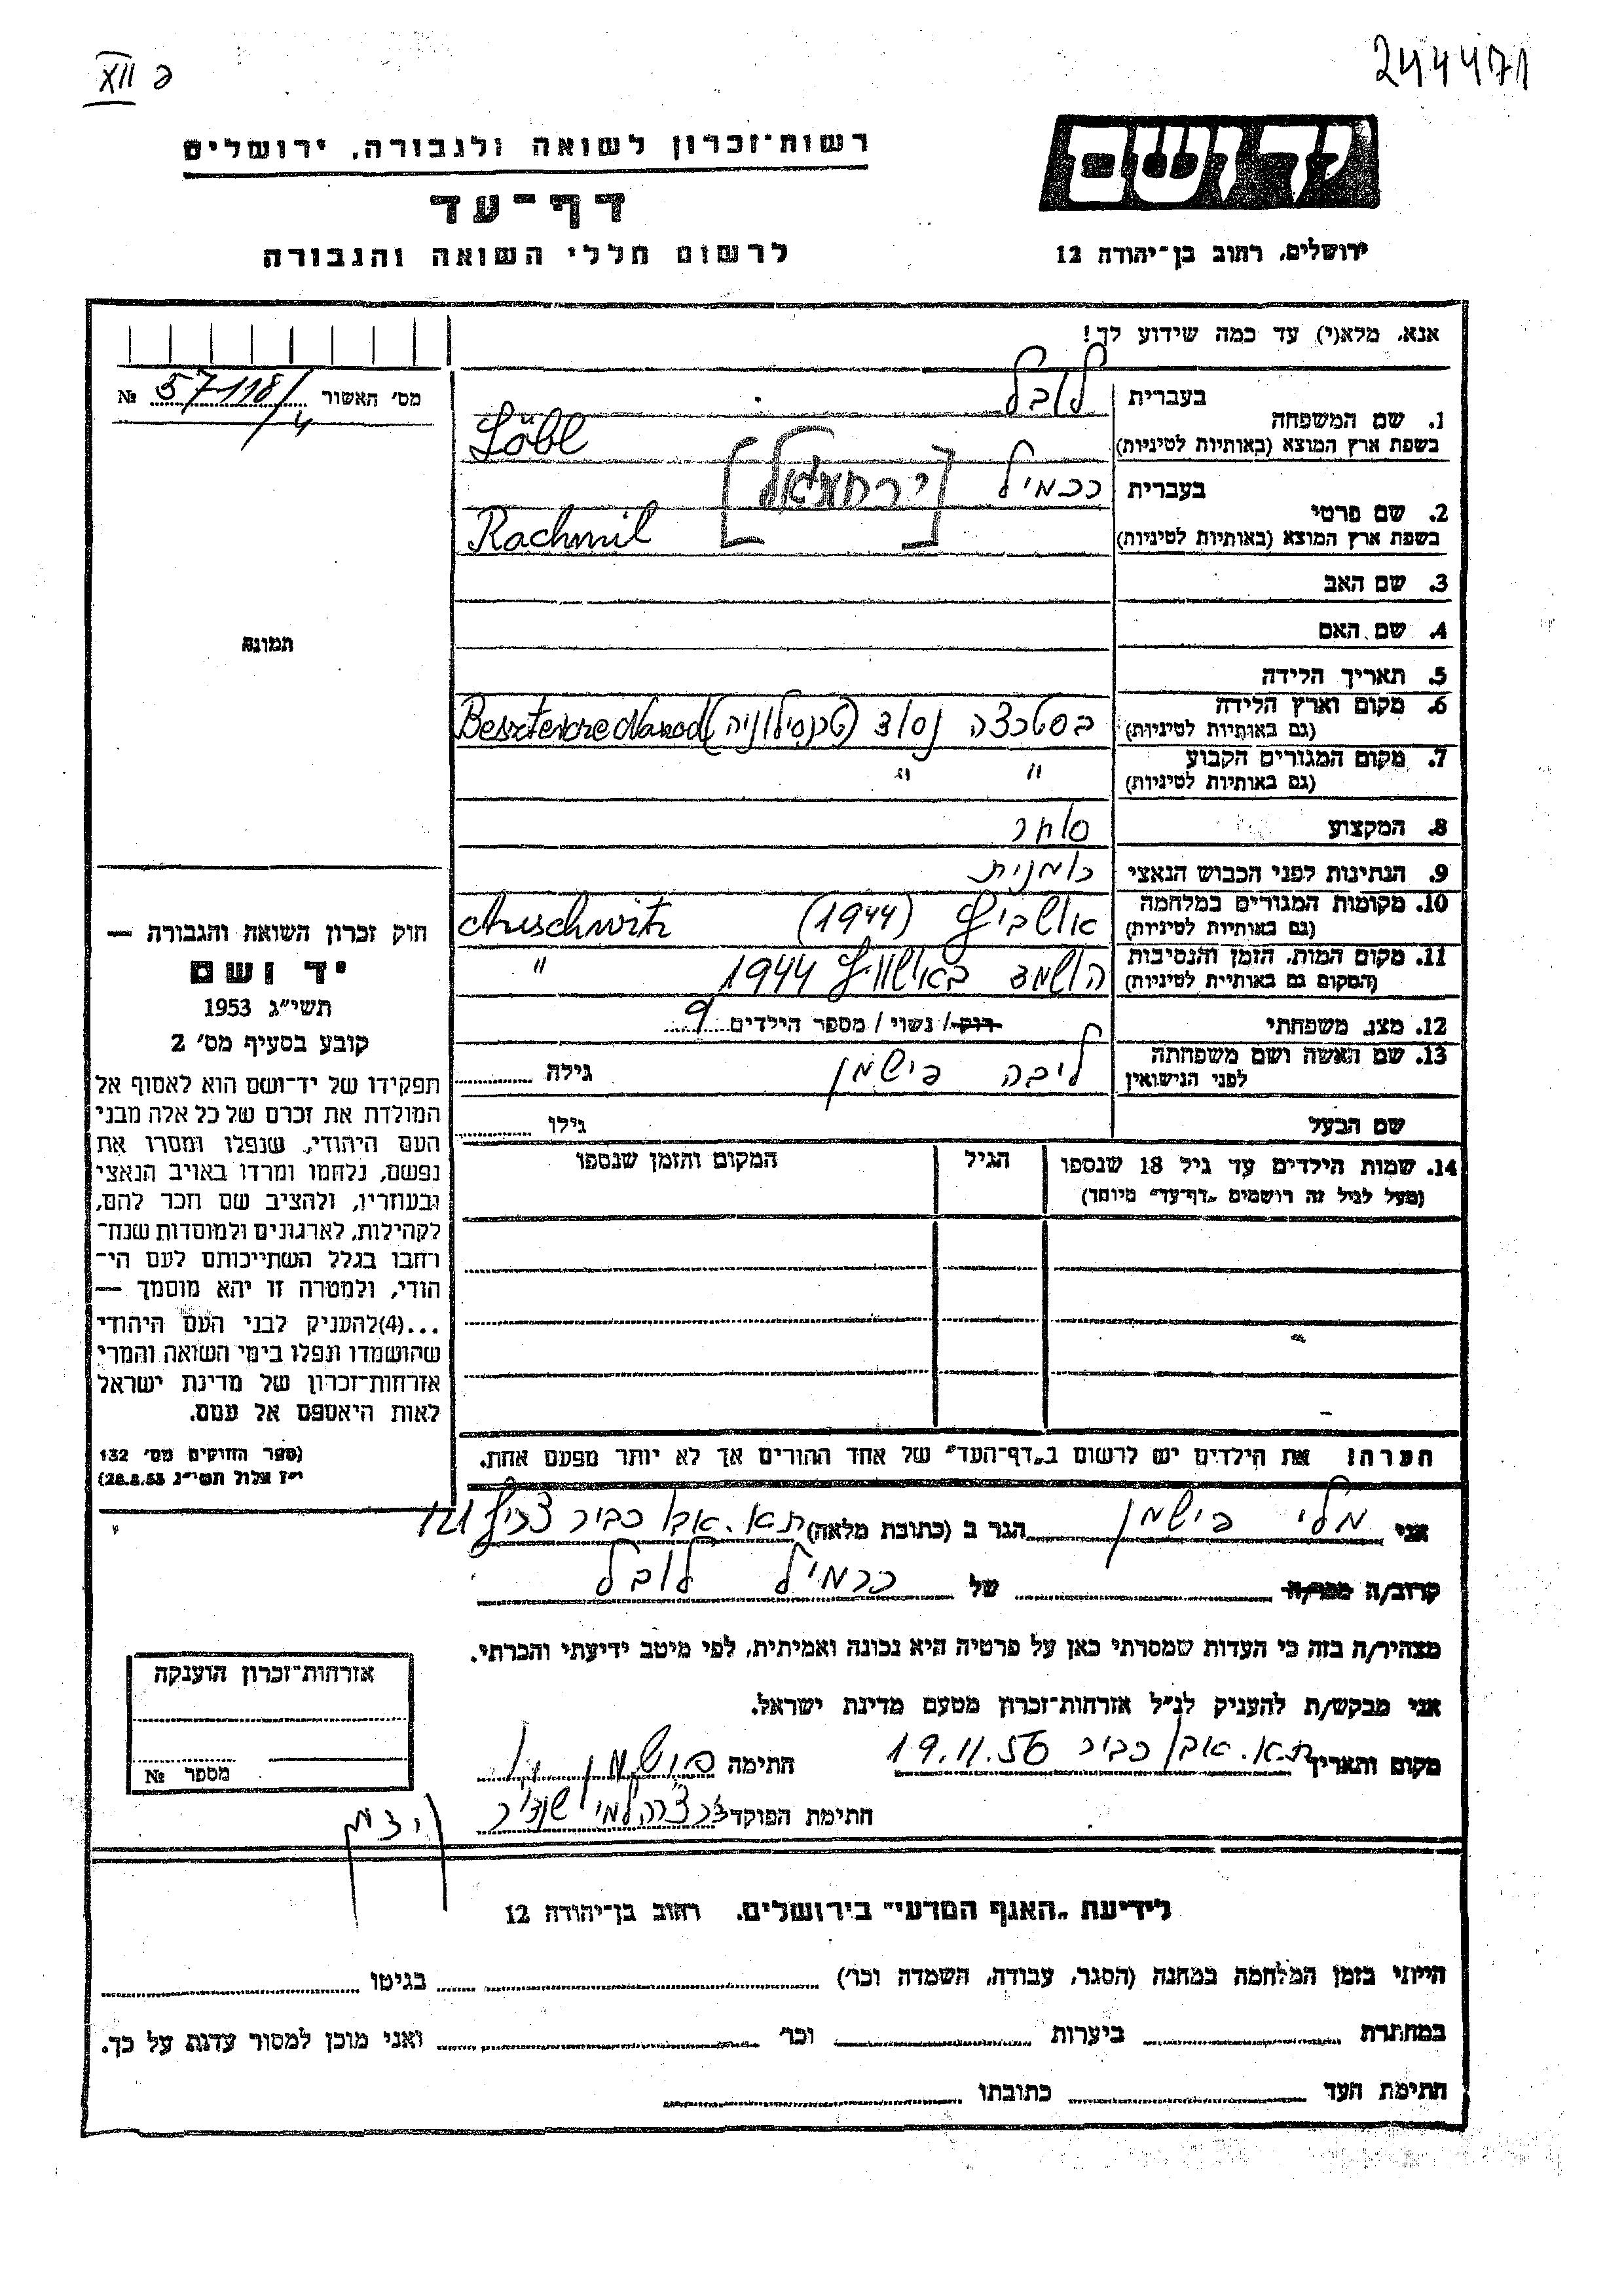 XII פ
244471
רשות־זכרון לשואה ולגבורה, ירושלים
יד ושם
דף־עד
לרשום חללי השואה והגבורה
ירושלים, רחוב בן־יהודה 12
אנא, מלא(י) עד כמה שידוע לך!
מס' האשור 57118/4 №
1. שם המשפחה
בעברית לובל
בשפת ארץ המוצא (באותיות לטיניות) Löbl
2. שם פרטי
בעברית רכמיל [ירחמיאל]
בשפת ארץ המוצא (באותיות לטיניות) Rachmil
3. שם האב
4. שם האם
תמונה
5. תאריך הלידה
6. מקום וארץ הלידה
(גם באותיות לטיניות)
בסטרצה נסוד (טרנסילוניה)
7. מקום המגורים הקבוע " "
(גם באותיות לטיניות)
8. המקצוע סוחר
9. הנתינות לפני הכבוש הנאצי רומנית
10. מקומות המגורים במלחמה
(גם באותיות לטיניות)
אושביץ (1944) Auschwitz
11. מקום המות, הזמן והנסיבות
(המקום גם באותיות לטיניות)
הושמד באושוויץ 1944 "
12. מצב משפחתי רוק / נשוי / מספר הילדים 9
13. שם האשה ושם משפחתה
לפני הנישואין
ליבה פישמן גילה
שם הבעל גילו
14. שמות הילדים עד גיל 18 שנספו
(מעל לגיל זה רושמים "דף־עד" מיוחד)
הגיל
המקום והזמן שנספו
חוק זכרון השואה והגבורה —
יד ושם
תשי"ג 1953
קובע בסעיף מס' 2
תפקידו של יד־ושם הוא לאסוף אל
המולדת את זכרם של כל אלה מבני
העם היהודי, שנפלו ומסרו את
נפשם, נלחמו ומרדו באויב הנאצי
ובעוזריו, ולהציב שם וזכר להם,
לקהילות, לארגונים ולמוסדות שנח־
רבו בגלל השתייכותם לעם הי־
הודי, ולמטרה זו יהא מוסמך —
...(4)להעניק לבני העם היהודי
שהושמדו ונפלו בימי השואה והמרי
אזרחות־זכרון של מדינת ישראל
לאות היאספם אל עמם.
(ספר החוקים מס' 132
י"ז אלול תשי"ג 28.8.53)
הערה! את הילדים יש לרשום ב"דף־העד" של אחד ההורים אך לא יותר מפעם אחת.
אני מלי פישמן הגר ב (כתובת מלאה) ת.א. אבו כביר צריף 121
קרוב/ה מכר/ה של רכמיל לובל
מצהיר/ה בזה כי העדות שמסרתי כאן על פרטיה היא נכונה ואמיתית, לפי מיטב ידיעתי והכרתי.
אני מבקש/ת להעניק לנ"ל אזרחות־זכרון מטעם מדינת ישראל.
מקום ותאריך ת.א. אבו כביר 19.11.56 חתימה פישמן
חתימת הפוקד
אזרחות־זכרון הוענקה
מספר №
לידיעת "האגף המדעי" בירושלים, רחוב בן־יהודה 12
הייתי בזמן המלחמה במחנה (הסגר, עבודה, השמדה וכו') בגיטו
במחתרת ביערות וכו' ואני מוכן למסור עדות על כך.
חתימת העד כתובתו